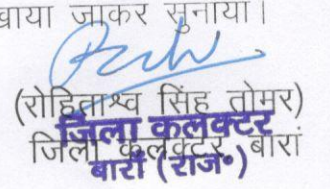 वाया जाकर सुनाया।
(रोहिताश्व सिंह तोमर)
जिला कलक्टर
जिला कलक्टर, बारां
बारां (राज॰)